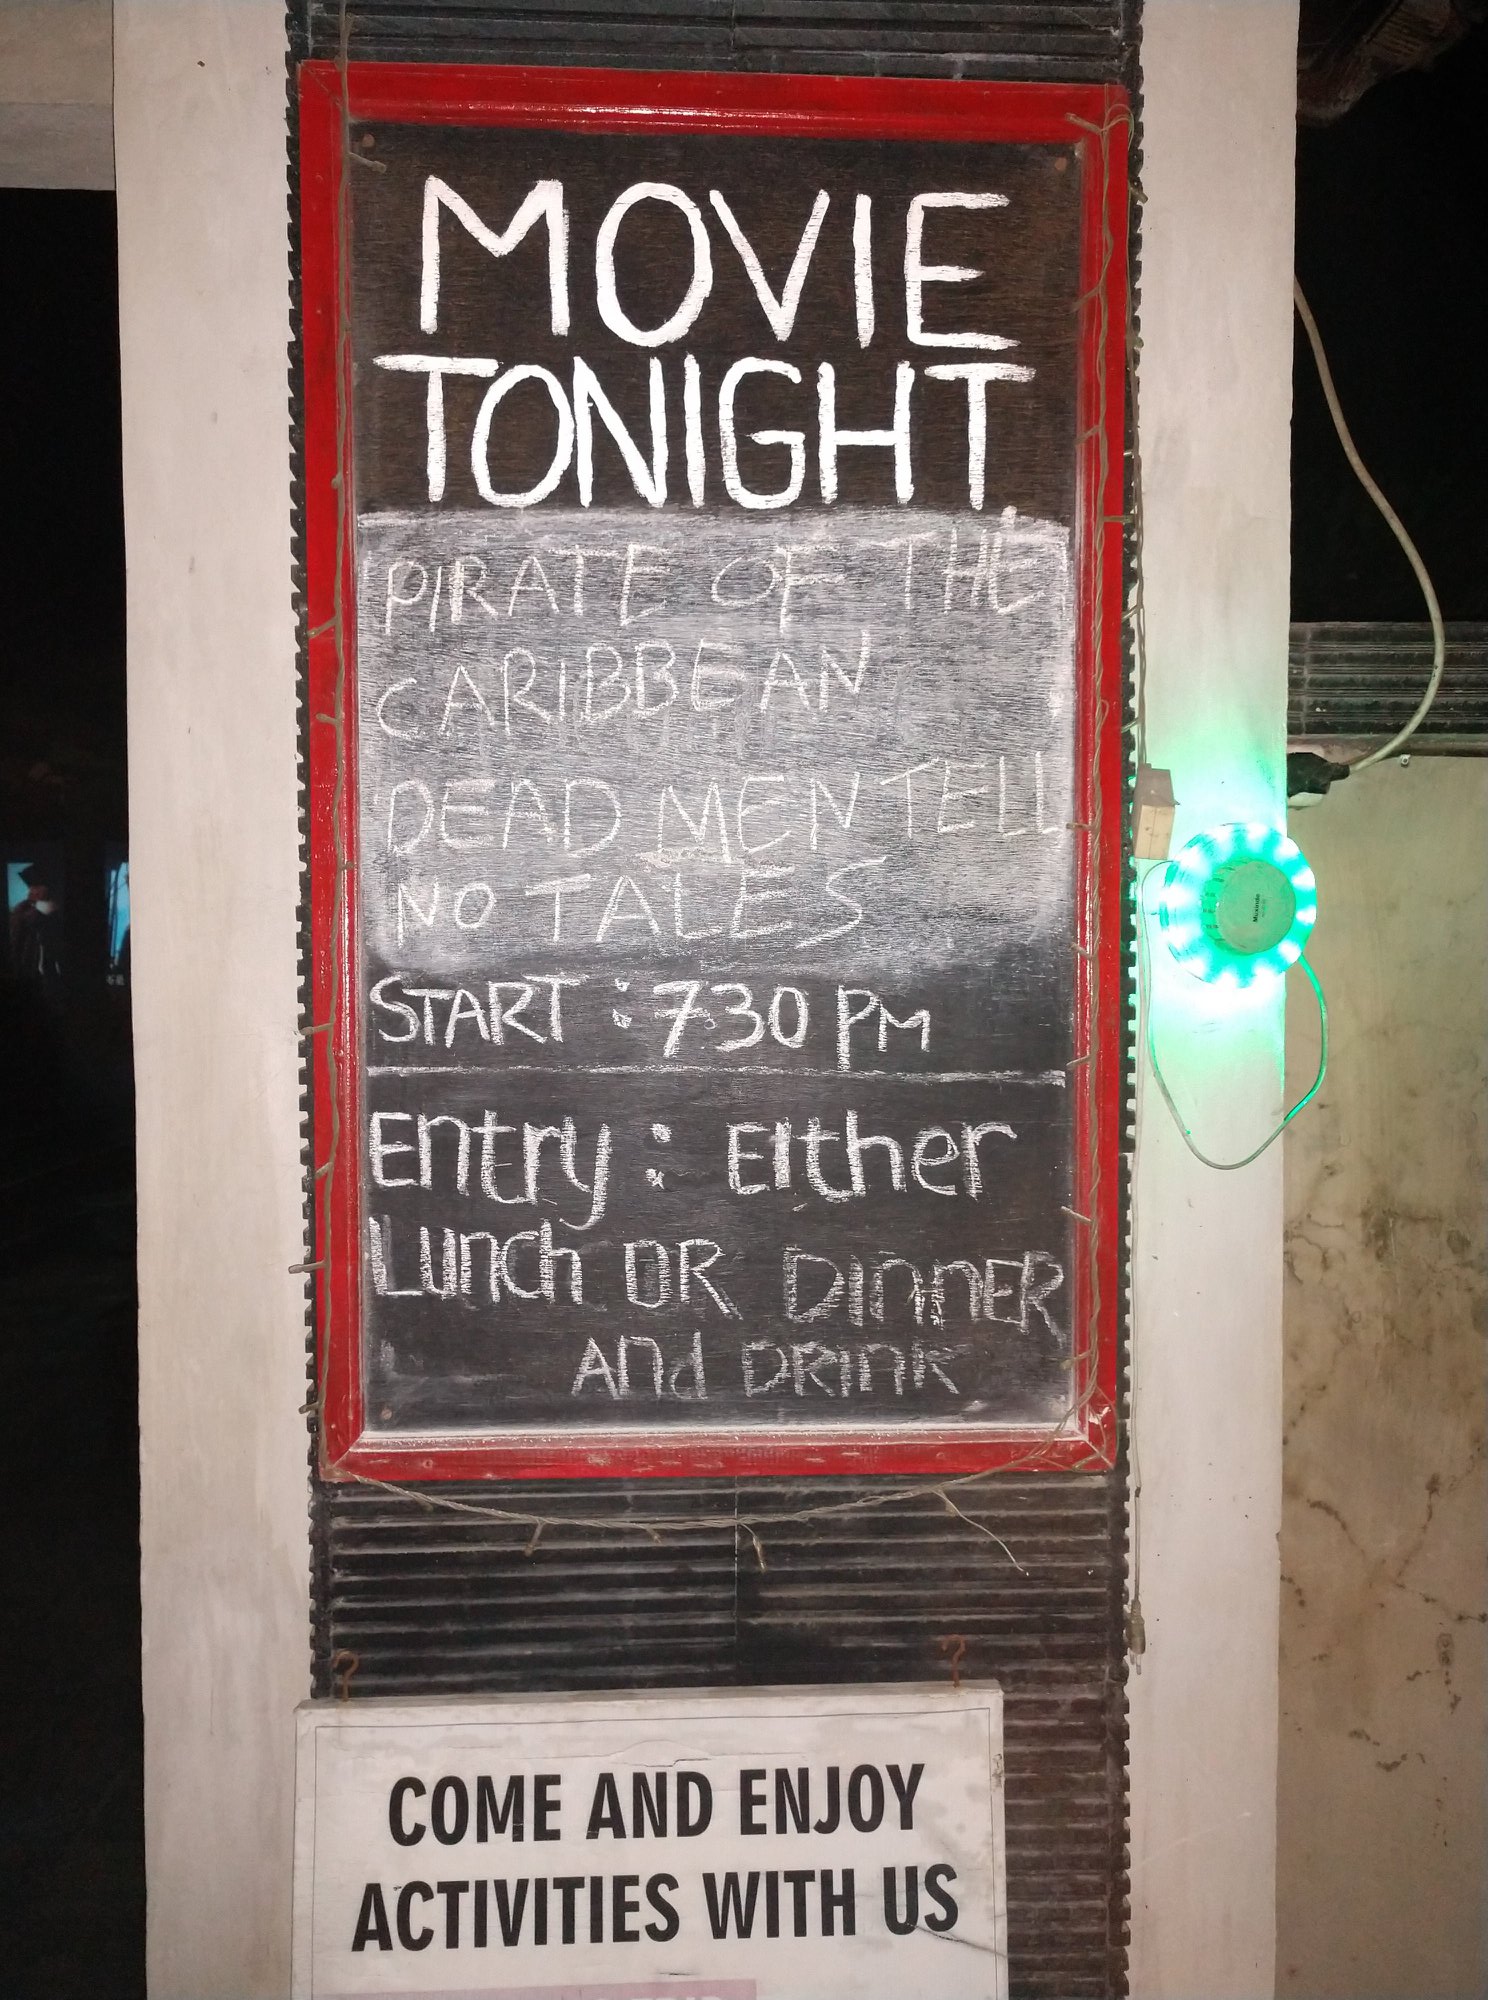 MOVIE
TONIGHT
PIRATE OF THE
CARIBBEAN
DEAD MEN TELL
NO TALES
START : 7:30 PM
Entry : EIther
Lunch OR DinnER
And DRinK
COME AND ENJOY
ACTIVITIES WITH US